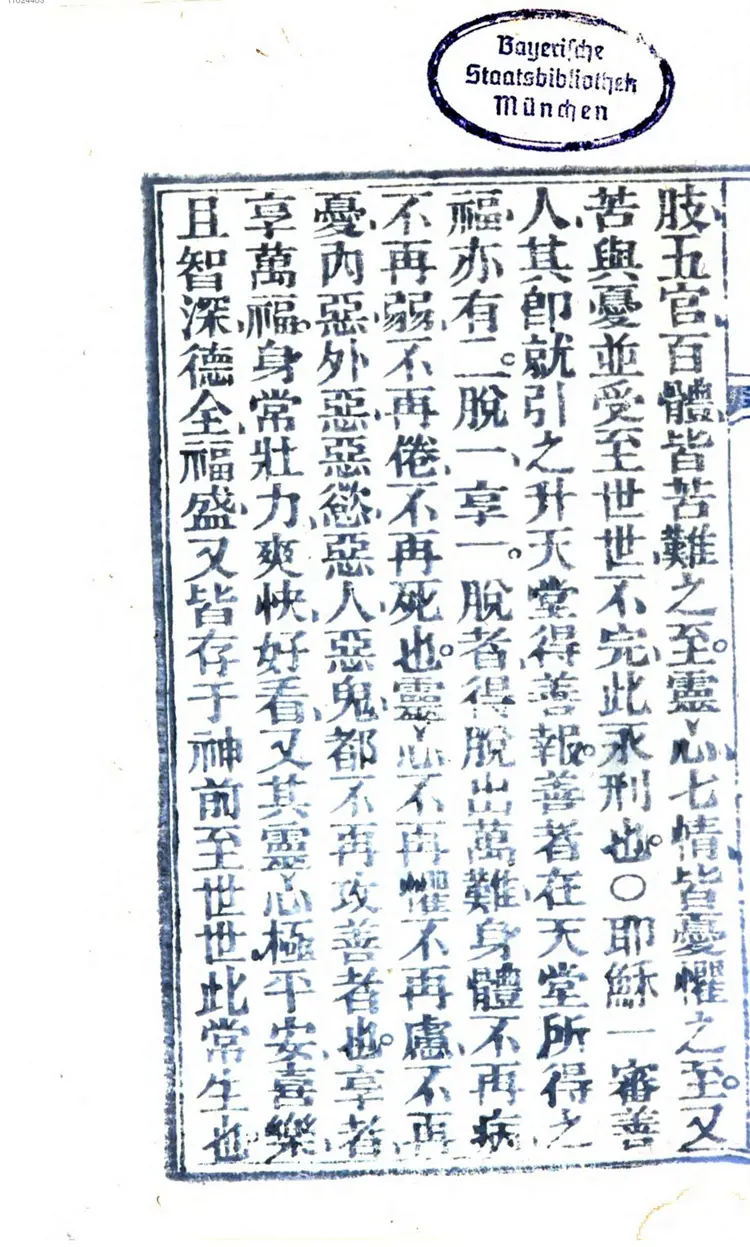 11024403
Bayerische
Staatsbibliothek
München
肢、五官百體、皆苦難之至。靈心七情、皆憂懼之至。又
苦與憂並受至世世、不完、此永刑也。○耶穌一審善
人、其卽就引之升天堂得善報。善者在天堂所得之
福、亦有二。脫一、享一。脫者、得脫出萬難、身體不再病、
不再弱、不再倦、不再死也。靈心不再懼、不再慮、不再
憂、內惡外惡、惡慾、惡人、惡鬼、都不再攻善者也。享者、
享萬福。身常壯力、爽快、好看、又其靈心極平安、喜樂、
且智深、德全、福盛、又皆存于神前至世世、此常生也。